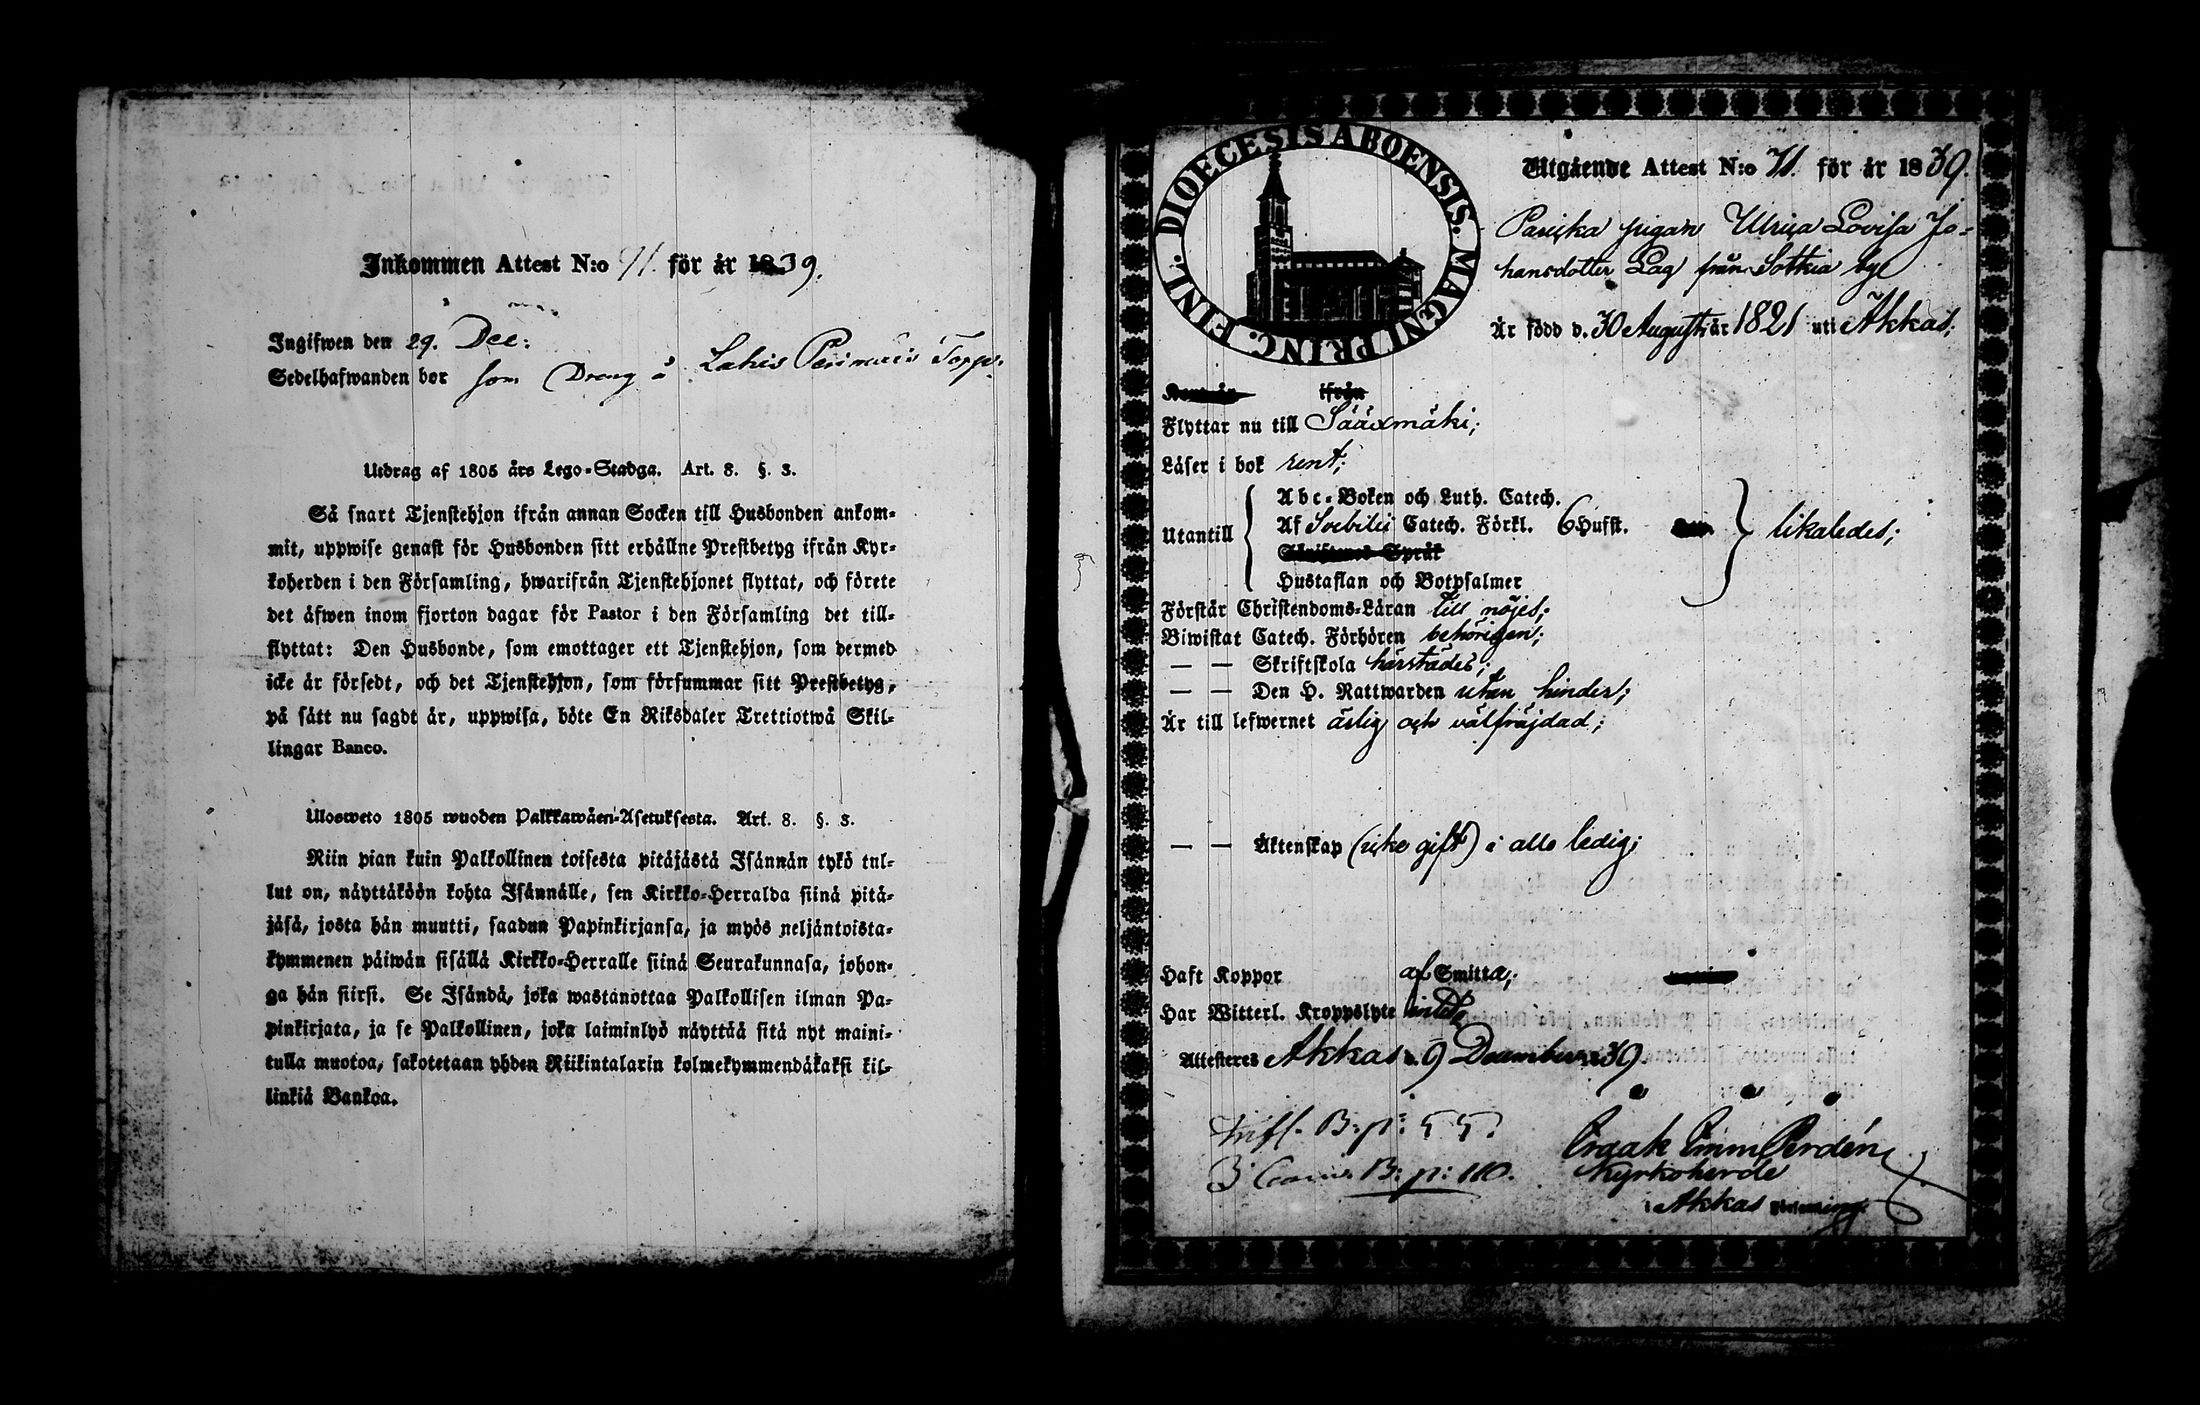 Inkommen Attest N:o 71. för år 1839.
Ingifwen den 29. Dec:
Sedelhafwanden bor som Dräng å Lahis Torp.
Utdrag af 1805 års Lego-Stadga. Art. 8. §. 3.
Så snart Tjenstehjon ifrån annan Socken till Husbonden ankom-
mit, uppwise genast för Husbonden sitt erhållne Prestbetyg ifrån Kyr-
koherden i den Församling, hwarifrån Tjenstehjonet flyttat, och förete
det äfwen inom fjorton dagar för Pastor i den Församling det till-
flyttat: Den Husbonde, som emottager ett Tjenstehjon, som dermed
icke är försedt, och det Tjenstehjon, som försummar sitt Prestbetyg,
på sätt nu sagdt är, uppwisa, böte En Riksdaler Trettiotwå Skil-
lingar Banco.
Ulosweto 1805 wuoden Palkkawäen-Asetuksesta. Art. 8. §. 3.
Niin pian kuin Palkollinen toisesta pitäjästä Isännän tykö tul-
lut on, näyttäköön kohta Isännälle, sen Kirkko-Herralda siinä pitä-
jäsä, josta hän muutti, saadun Papinkirjansa, ja myös neljäntoista-
kymmenen päiwän sisällä Kirkko-Herralle siinä Seurakunnasa, johon-
ga hän siirsi. Se Isändä, joka wastanottaa Palkollisen ilman Pa-
pinkirjata, ja se Palkollinen, joka laiminlyö näyttää sitä nyt maini-
tulla muotoa, sakotetaan yhden Riikintalarin kolmekymmendäkaksi kil-
linkiä Bankoa.
DIOECESIS ABOENSIS. MAGNI PRINC. FINL.
Utgående Attest N:o 71. för år 1839.
Pariska pigan Ulrica Lovisa Jo-
hansdotter Lag från Sotkia by
Är född d. 30 Augusti år 1821 uti Akkas;
ifrån
Flyttar nu till Sääxmäki;
Läser i bok rent;
Utantill
Abc-Boken och Luth. Catech.
Af Svebilii Catech. Förkl. 6 Hufst.
Skriftenes Språk
Hustaflan och Botpsalmer
likaledes;
Förstår Christendoms-Läran till nöjes;
Biwistat Catech. Förhören behörigen;
— — Skriftskola härstädes;
— — Den H. Nattwarden utan hinder;
Är till lefwernet ärlig och välfräjdad;
— — Äktenskap (icke gift) i allo ledig;
Haft Koppor af Smitta;
Har Witterl. Kroppslyte
Attesteres Akkas d. 9 December 1839.
B: p: 55.
B: p: 110.
Emm Perdén
Kyrkoherde
i Akkas Församling.